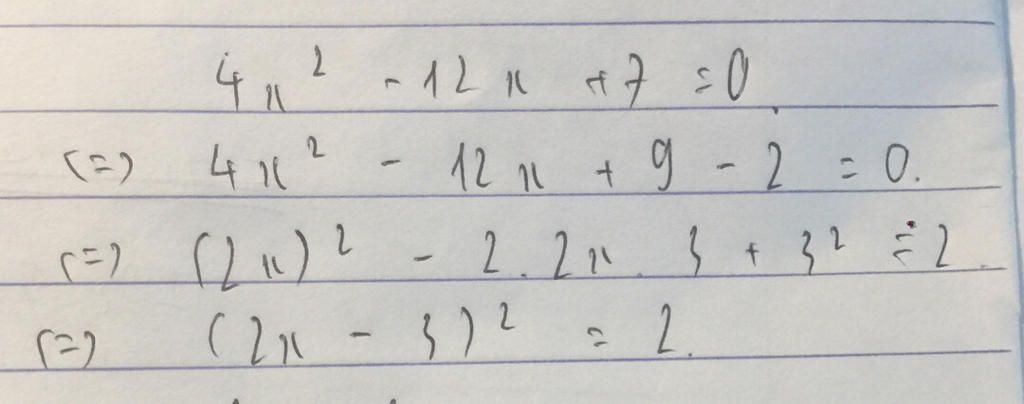 4x² - 12x + 7 = 0
(=) 4x² - 12x + 9 - 2 = 0.
(=) (2x)² - 2.2x.3 + 3² = 2
(=) (2x - 3)² = 2.